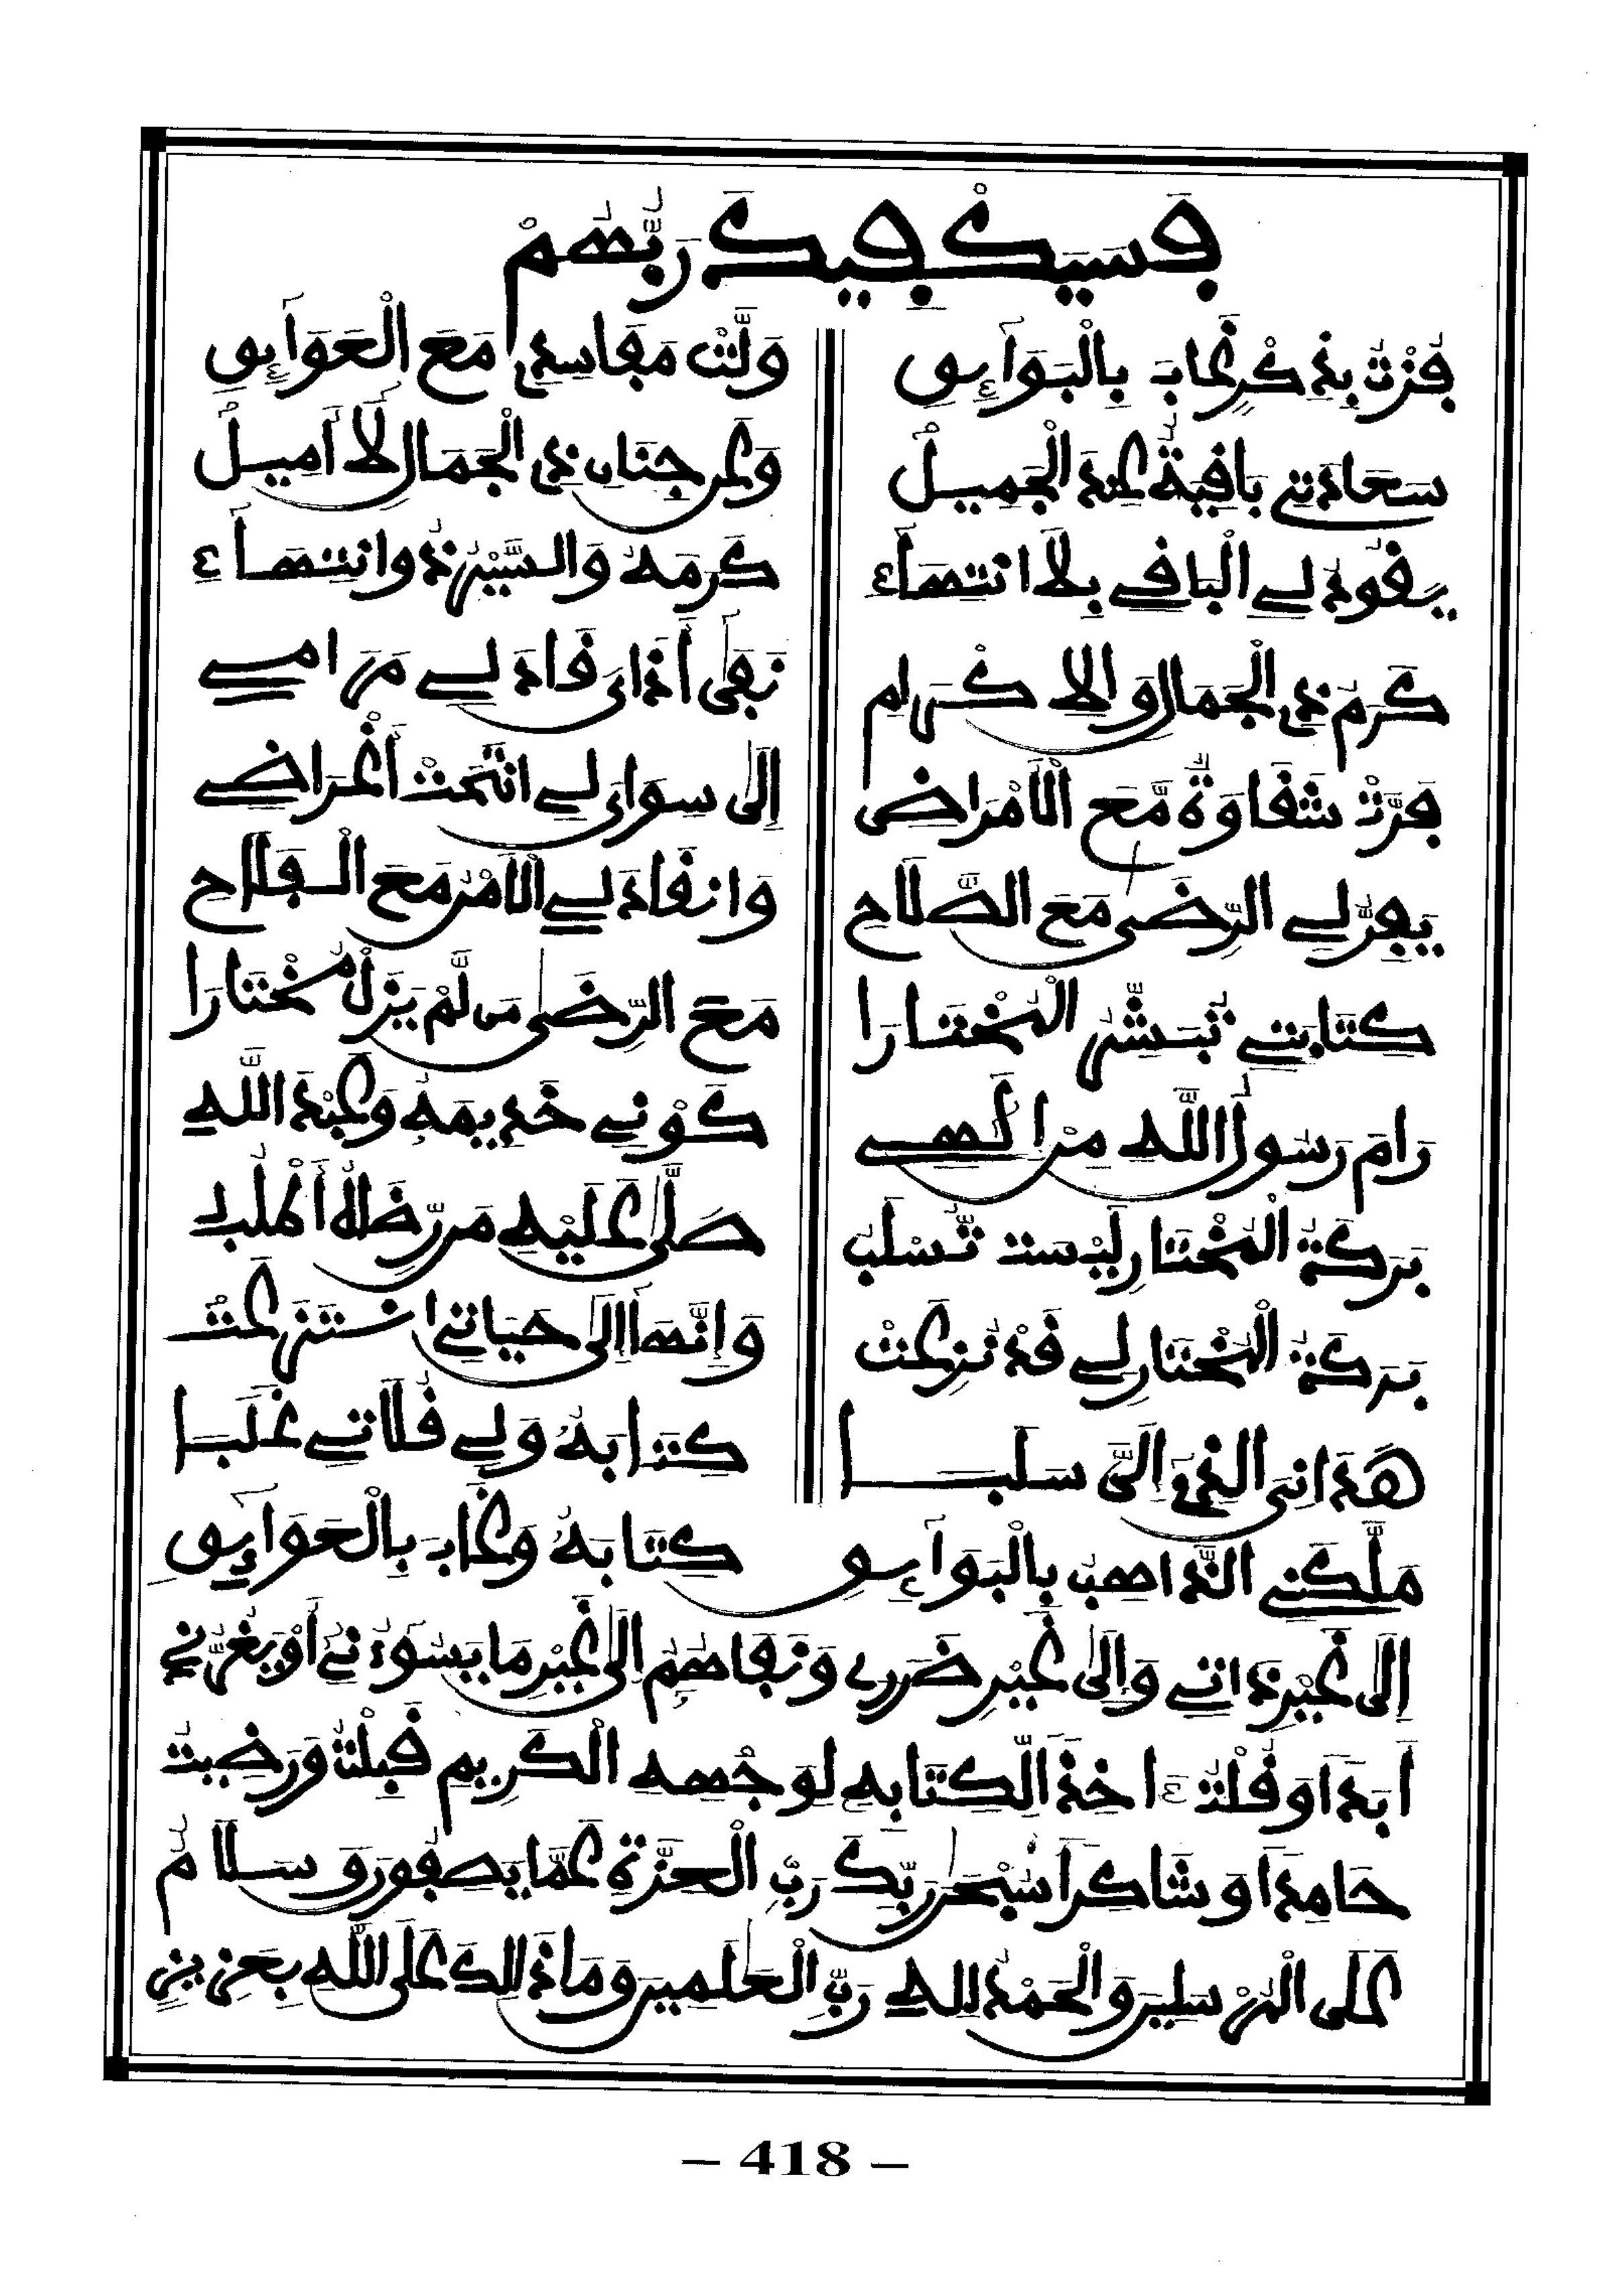 فسيكفيكـ ربهم
فزت بذكر غاب بالبوآئق ولت مفاسد مع العوآئق
سعادتي باقية عند الجميل وعن جناب ذي الجمال لا أميل
يقود لي الباقي بلا انتهآء كرمه والسير ذو انتهآء
كرم ذي الجمال والإكرام نفى أذاي قاد لي مرامي
فرت شقاوة مع الأمراض إلى سواي لي انتحت أغراضي
يفر لي الرضى مع الصلاح وانقاد لي الأمر مع الفلاح
كتابتي تبشر المختارا مع الرضى من لم يزل مختارا
رام رسول الله من إلهي كوني خديمه وعبد الله
بركة المختار ليست تسلب صلى عليه من رضاه أطلب
بركة المختار لي قد نزعت وإنهآ إلى حياتي
هداني الذي إلي سلبا كتابه ولي فلاتي غلبا
ملكني الذاهب بالبوآئق كتابه وغاب بالعوآئق
إلى غير ذاتي وإلى غير ضرري ونفاهم إلى غير ما يسوءني أو يغرني
أبدا وقلت خذ الكتابه لوجهه الكريم قبلت ورضيت
حامدا وشاكرا سبحن ربك رب العزة عما يصفون وسلام
على المرسلين والحمد لله رب العلمين وما ذالك على الله بعزيز
– 418 –